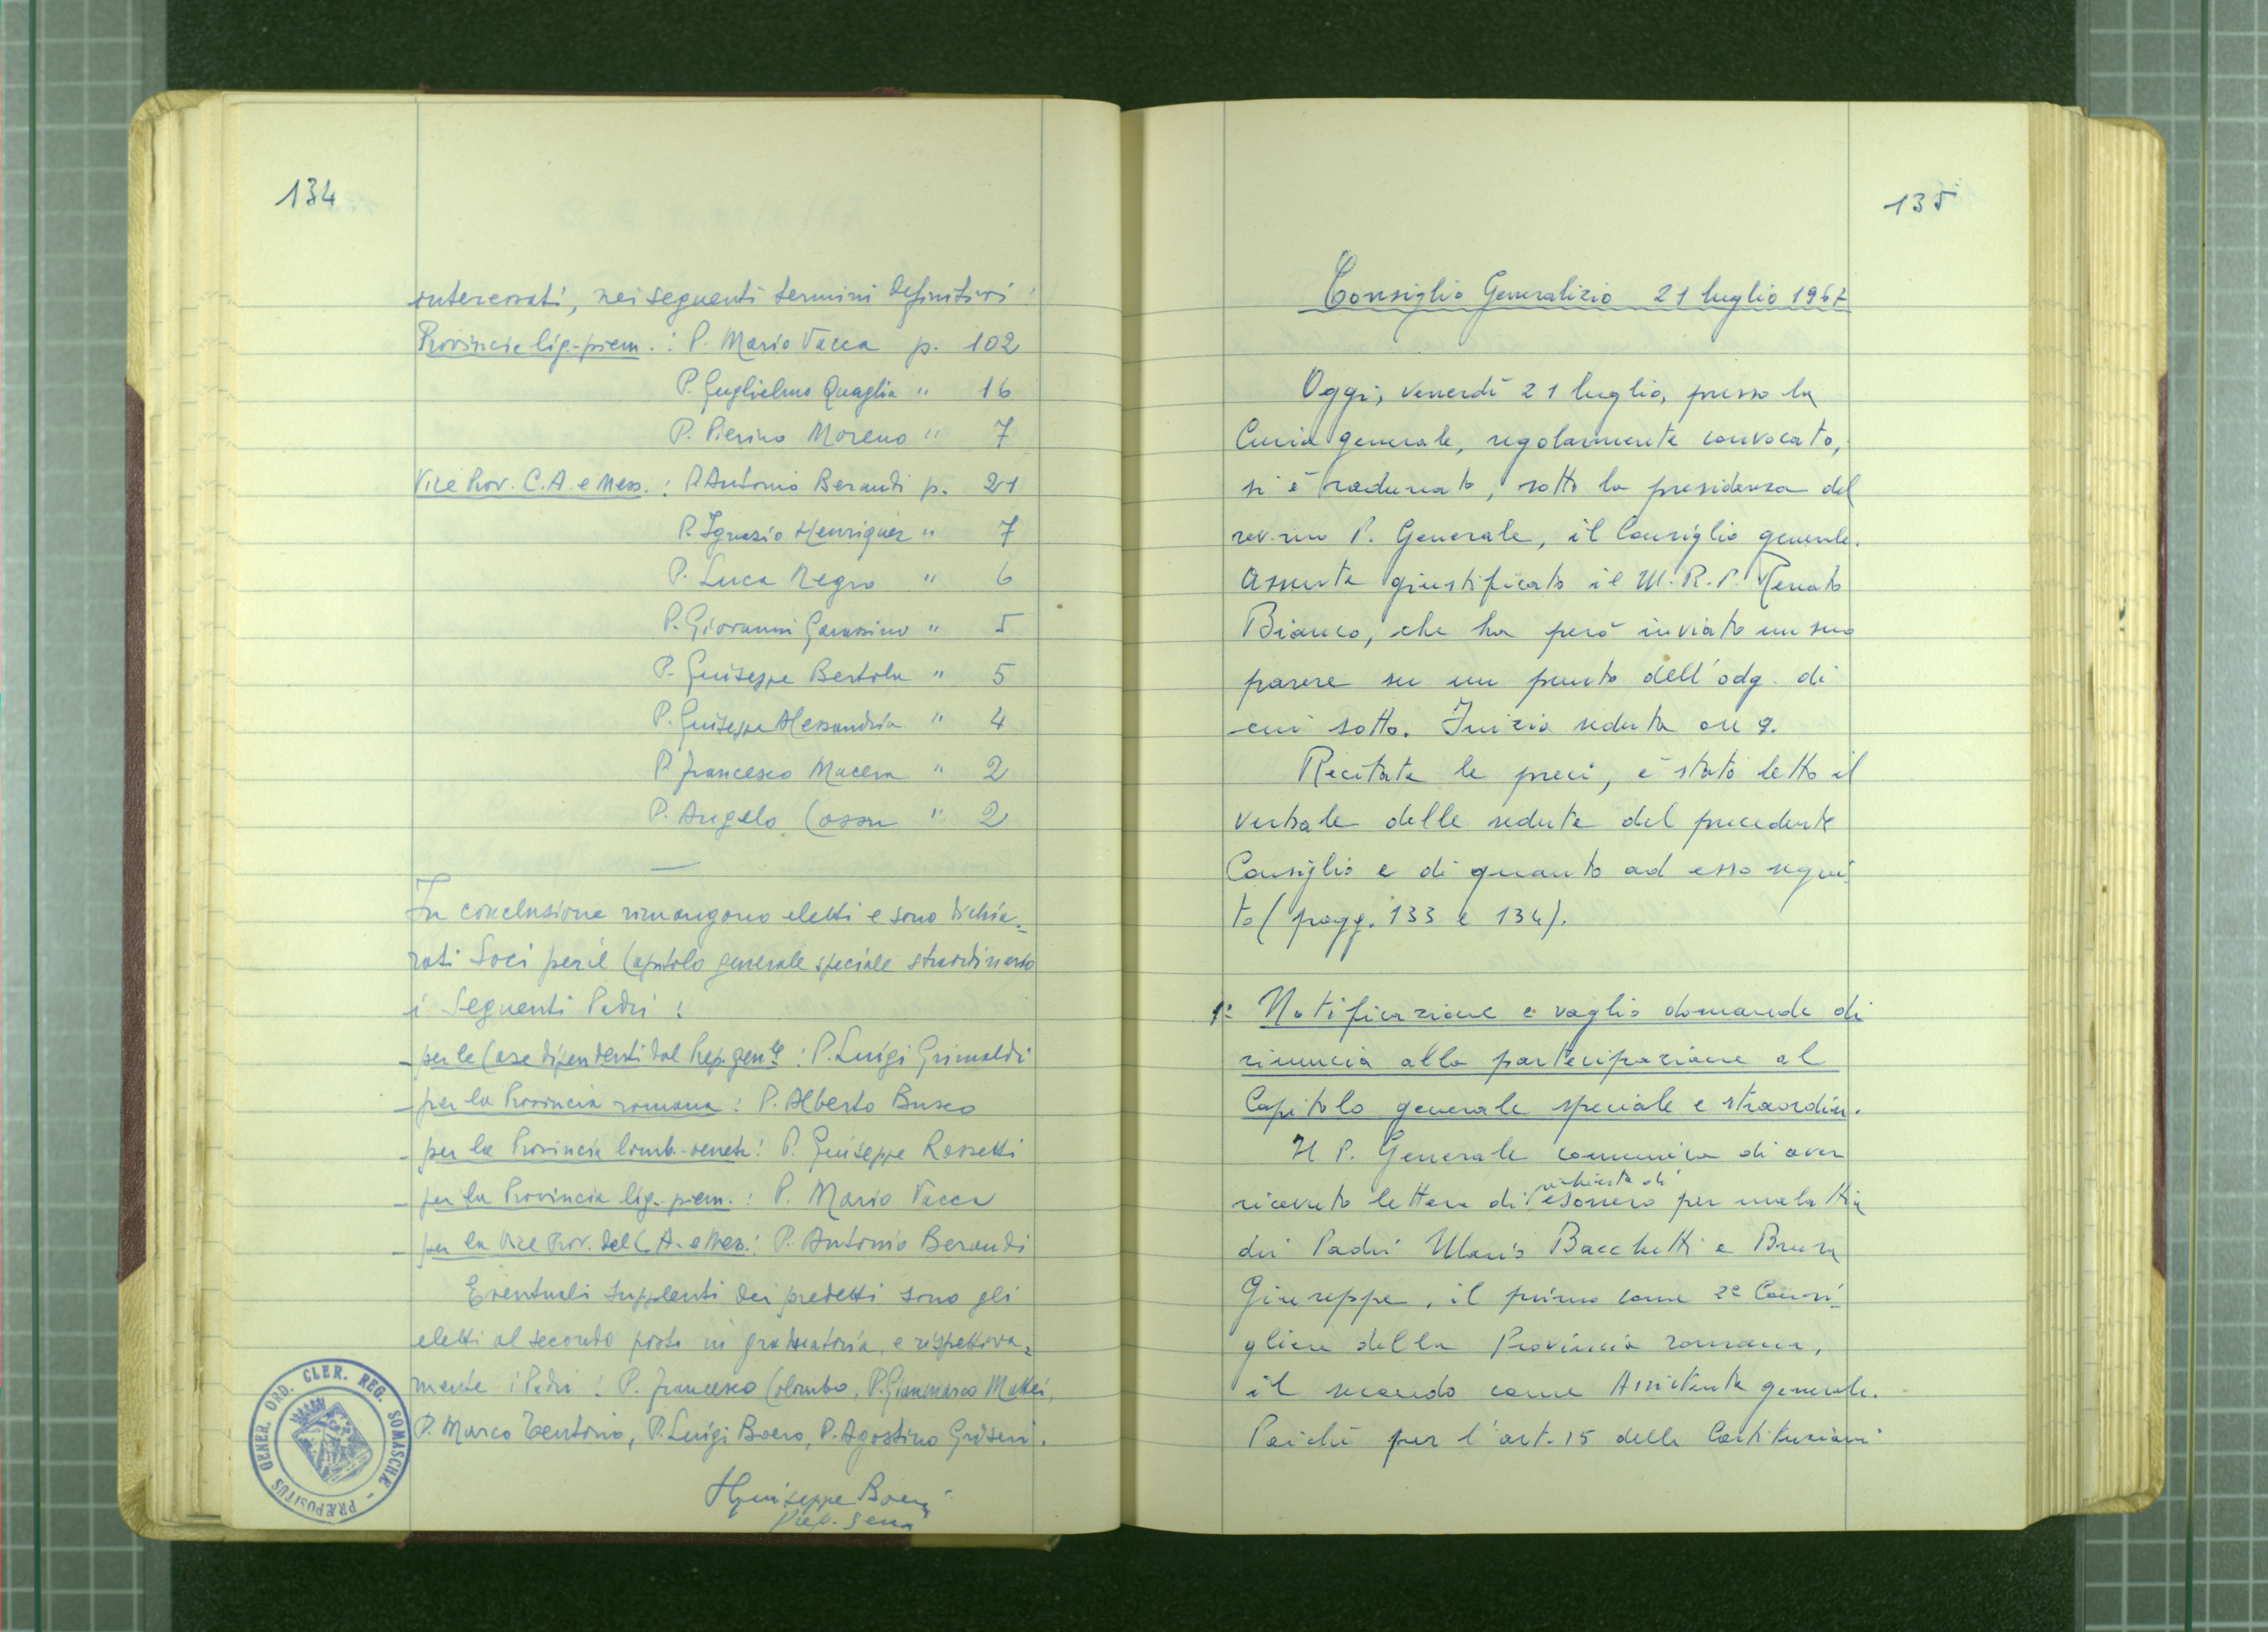 134
interessati, nei seguenti termini definitivi:
Provincia lig.-piem.: P. Mario Vacca p. 102
P. Guglielmo Quaglia " 16
P. Pierino Moreno " 7
Vice Prov. C.A. e Mess.: P. Antonio Berandi p. 21
P. Ignazio Henriquez " 7
P. Luca Negro " 6
P. Giovanni Garassino " 5
P. Giuseppe Bertola " 5
P. Giuseppe Alessandria " 4
P. Francesco Macera " 2
P. Angelo Cossu " 2
In conclusione rimangono eletti e sono dichia=
rati Soci per il Capitolo generale speciale straordinario
i Seguenti Padri:
- per le Case dipendenti dal Prep. gen.le: P. Luigi Grimaldi
- per la Provincia romana: P. Alberto Busco
- per la Provincia lomb.-veneta: P. Giuseppe Rossetti
- per la Provincia lig.-piem.: P. Mario Vacca
- per la Vice Prov. del C.A. e Mess.: P. Antonio Berandi
Eventuali supplenti dei predetti sono gli
eletti al secondo posto in graduatoria, e rispettiva=
mente i Padri: P. Francesco Colombo, P. Gianmarco Mattei,
P. Marco Tentorio, P. Luigi Boero, P. Agostino Griseri.
Giuseppe Boeri
Prep. Gen.
PRÆPOSITUS GENER. ORD. CLER. REG. SOMASCHÆ
135
Consiglio Generalizio 21 luglio 1967
Oggi, venerdì 21 luglio, presso la
Curia generale, regolarmente convocato,
si è radunato, sotto la presidenza del
rev.mo P. Generale, il Consiglio generale.
Assente giustificato il M.R.P. Renato
Bianco, che ha però inviato un suo
parere su un punto dell'odg. di
cui sotto. Inizio seduta ore 9.
Recitate le preci, è stato letto il
verbale delle sedute del precedente
Consiglio e di quanto ad esso segui-
to (pagg. 133 e 134).
1° Notificazione e vaglio domande di
rinuncia alla partecipazione al
Capitolo generale speciale e straordin.
Il P. Generale comunica di aver
richiesta di
ricevuto lettera di esonero per malattia
dei Padri Mario Bacchetti e Brusa
Giuseppe, il primo come 2° Consi-
gliere della Provincia romana,
il secondo come Assistente generale.
Poiché per l'art. 15 delle Costituzioni